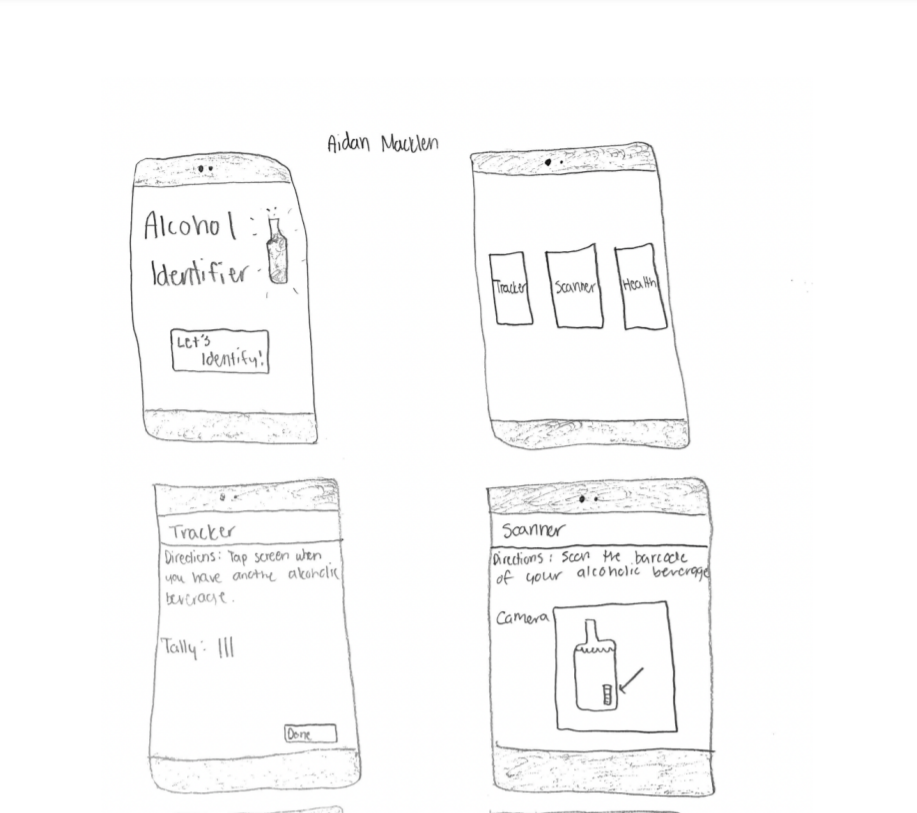 Aidan Macklen
Alcohol
Identifier
Let's
Identify!
Tracker
Scanner
Health
Tracker
Directions: Tap screen when
you have anothe alcoholic
beverage.
Tally: |||
Done
Scanner
Directions: Scan the barcode
of your alcoholic beverage
Camera